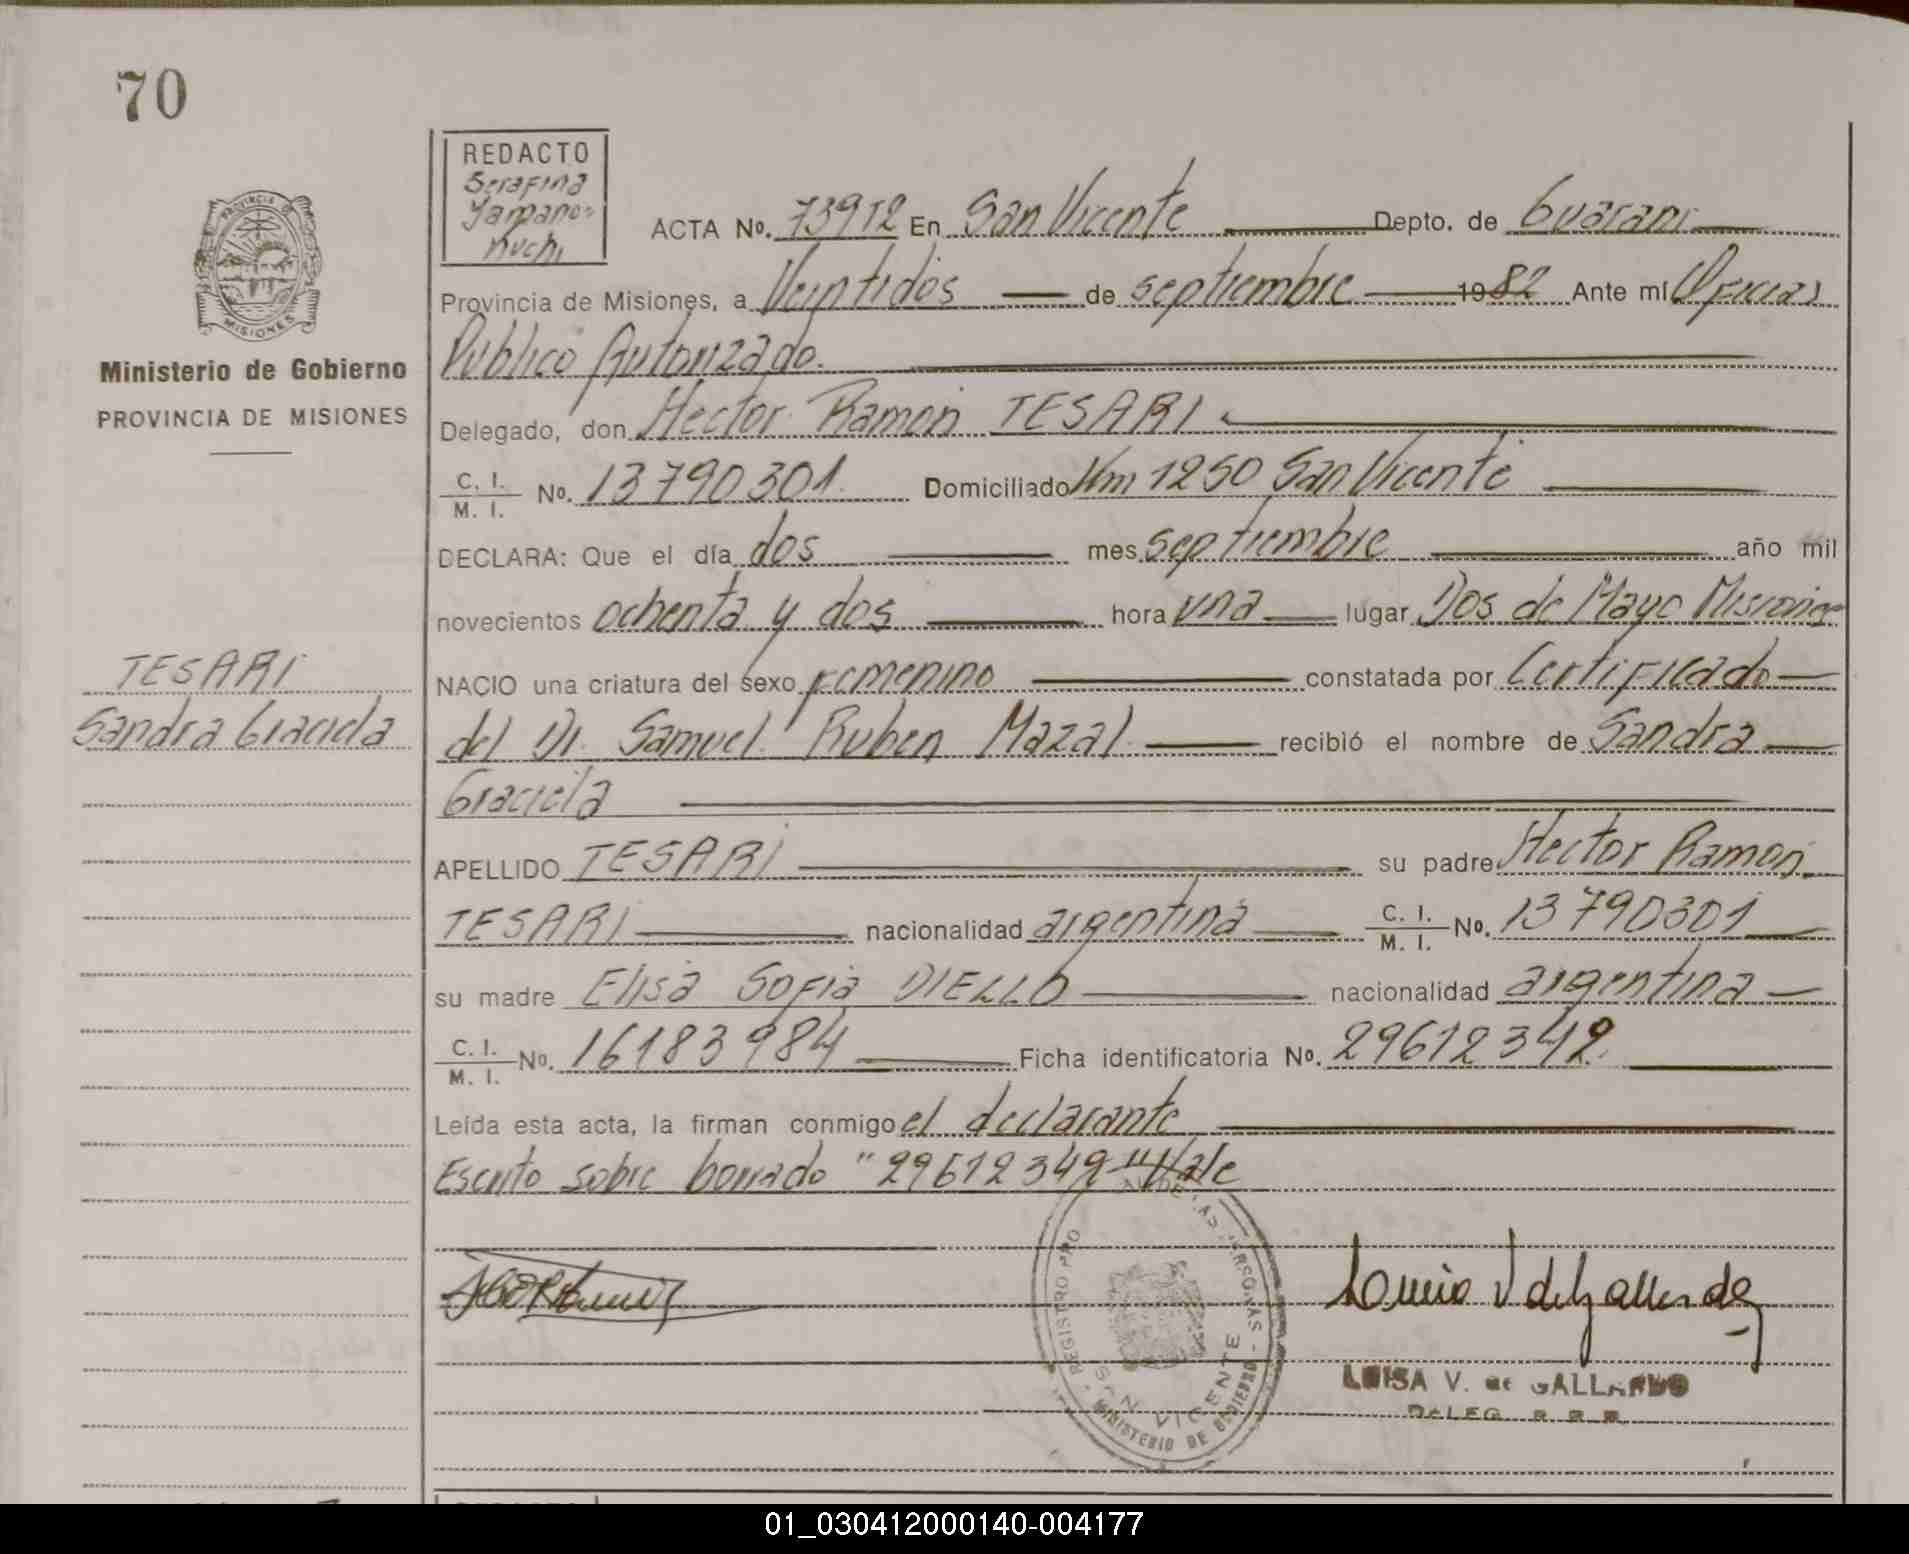 70
REDACTO
Serafina
Yamanouchi
PROVINCIA DE
MISIONES
Ministerio de Gobierno
PROVINCIA DE MISIONES
ACTA No. 73912 En San Vicente Depto. de Guarani
Provincia de Misiones, a Veintidós de septiembre 1982 Ante mí Oficial
Público Autorizado.
Delegado, don Hector Ramon TESARI
C. I. / M. I. No. 13790301. Domiciliado Km 1250 San Vicente
DECLARA: Que el día dos mes septiembre año mil
novecientos ochenta y dos hora una lugar Dos de Mayo Misiones
TESARI
NACIO una criatura del sexo femenino constatada por Certificado
Sandra Graciela
del Dr. Samuel Ruben Mazal recibió el nombre de Sandra
Graciela
APELLIDO TESARI su padre Hector Ramon
TESARI nacionalidad argentina C. I. / M. I. No. 13790301
su madre Elisa Sofia DIELLO nacionalidad argentina
C. I. / M. I. No. 16183984 Ficha identificatoria No. 29612349.
Leída esta acta, la firman conmigo el declarante
Escrito sobre borrado "29612349" Vale
REGISTRO PRO DE LAS PERSONAS
SAN VICENTE
MINISTERIO DE GOBIERNO
LUISA V. de GALLARDO
DELEG. R. P. P.
01_030412000140-004177